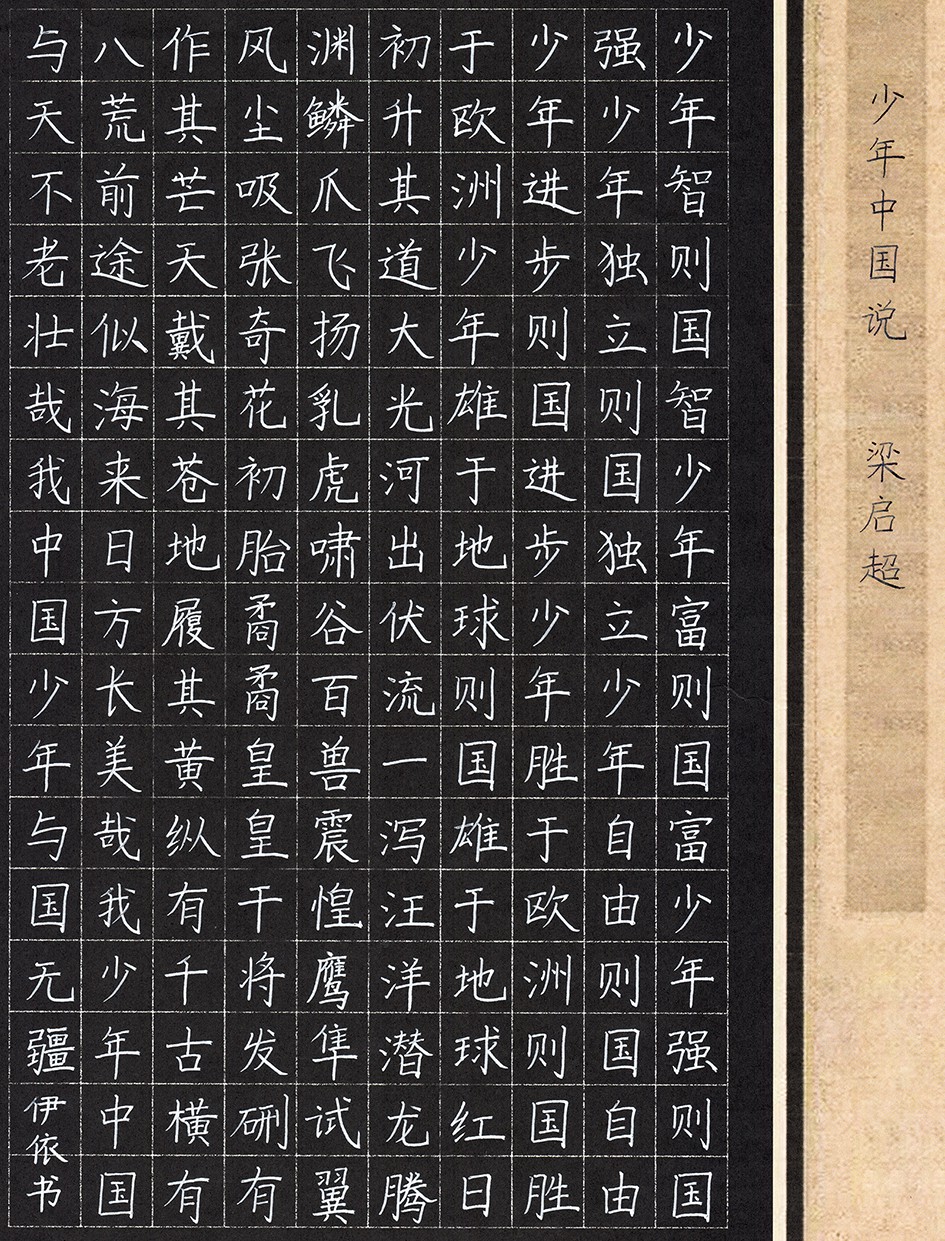 少年中国说 梁启超
少年智则国智少年富则国富少年强则国
强少年独立则国独立少年自由则国自由
少年进步则国进步少年胜于欧洲则国胜
于欧洲少年雄于地球则国雄于地球红日
初升其道大光河出伏流一泻汪洋潜龙腾
渊鳞爪飞扬乳虎啸谷百兽震惶鹰隼试翼
风尘吸张奇花初胎矞矞皇皇干将发硎有
作其芒天戴其苍地履其黄纵有千古横有
八荒前途似海来日方长美哉我少年中国
与天不老壮哉我中国少年与国无疆
伊依书